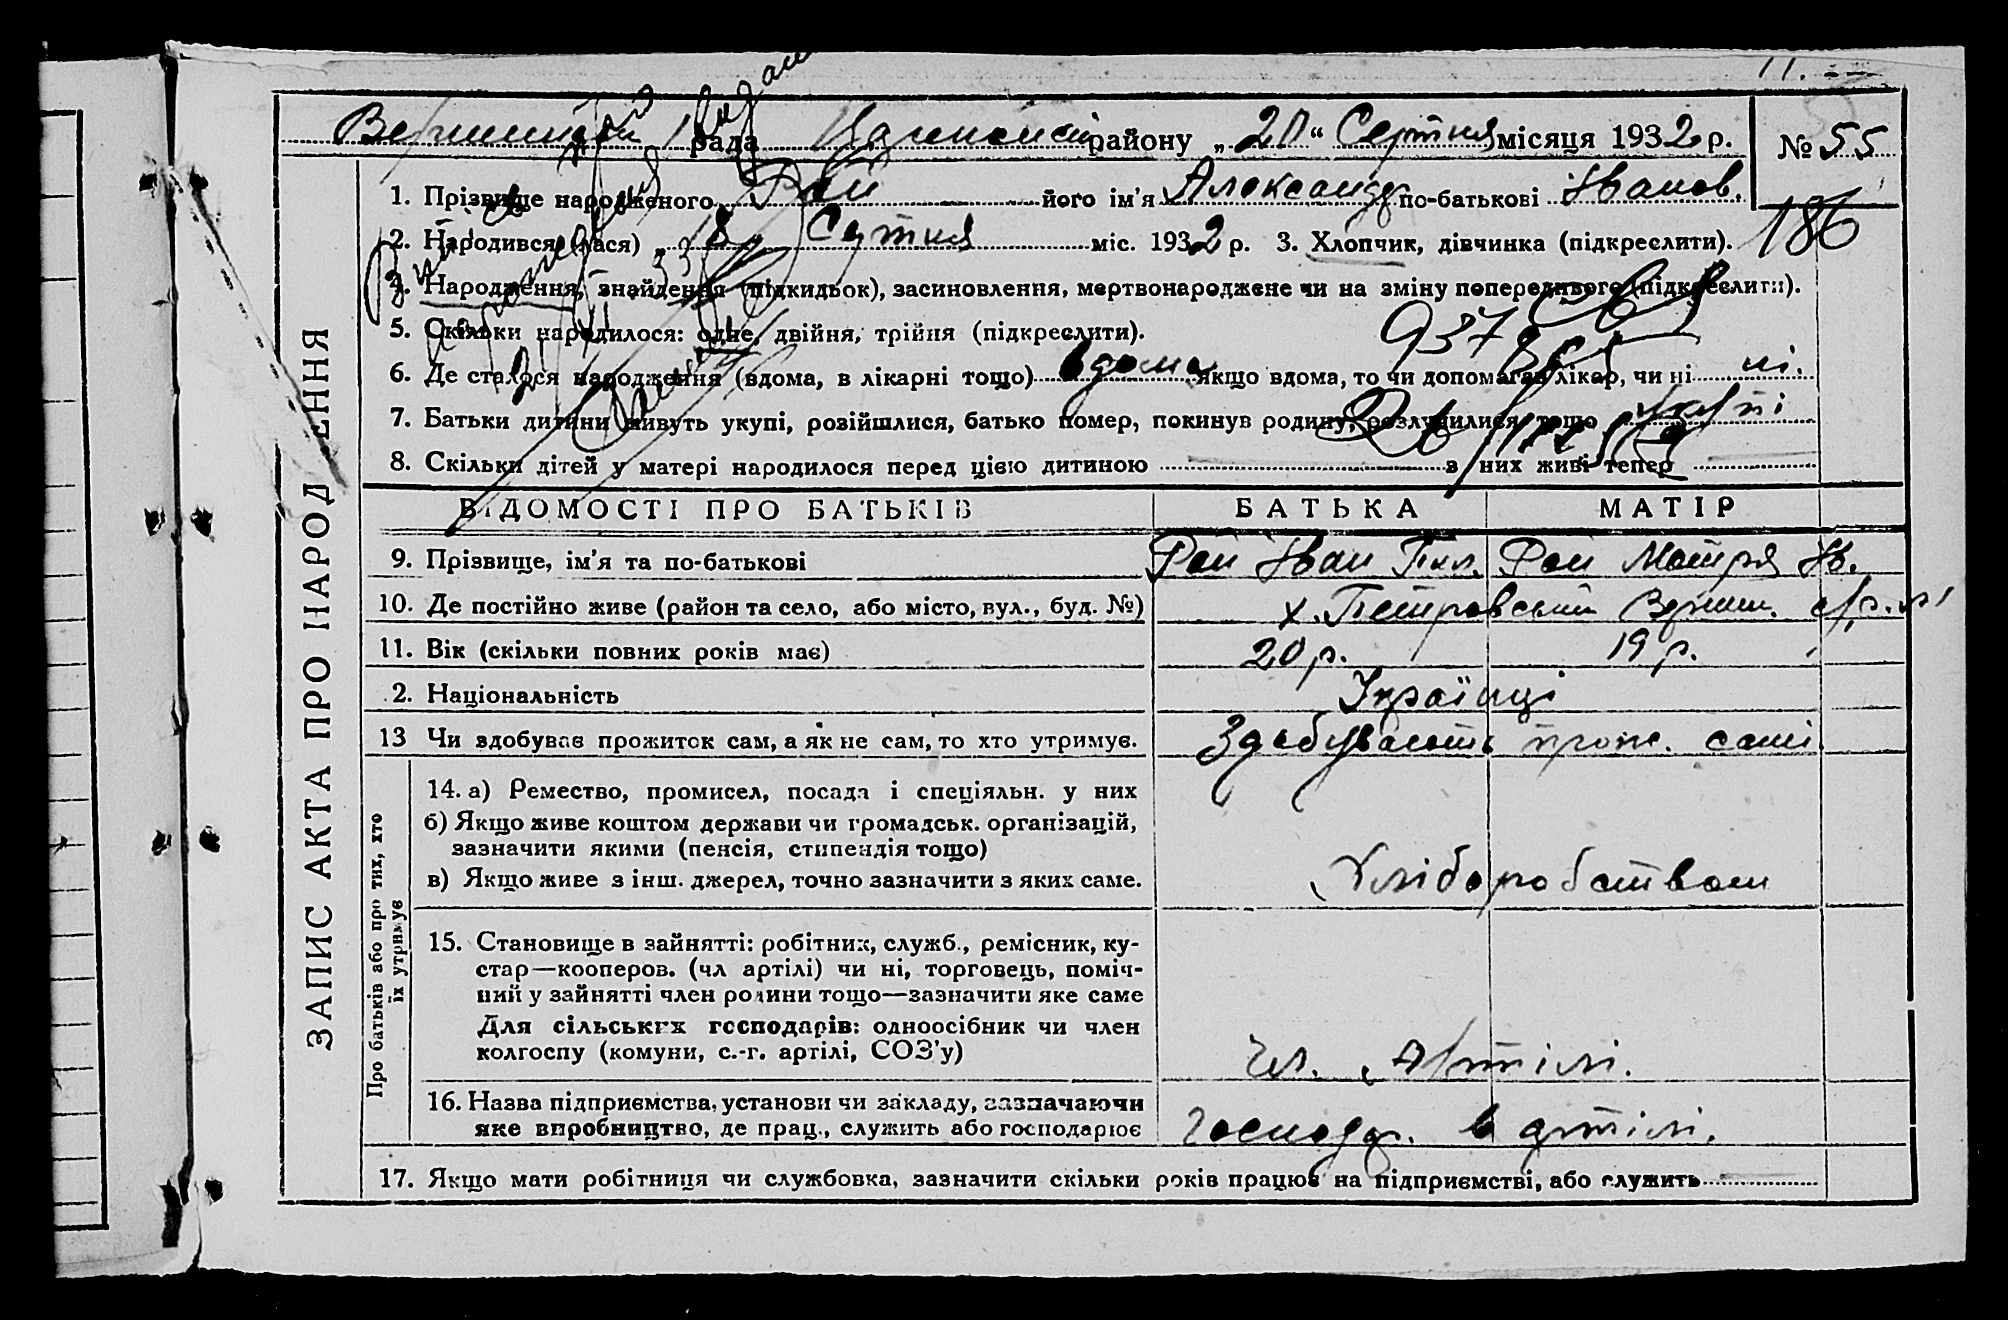 рада району „20“ Серпня місяця 1932 р. № 55
1. Прізвище народженого Рай його ім’я Александр по-батькові Іванов.
186
2. Народився (лася) „18“ Серпня міс. 1932 р. 3. Хлопчик, дівчинка (підкреслити).
4. Народження, знайдення (підкидьок), засиновлення, мертвонароджене чи на зміну попереднього (підкреслити).
5. Скільки народилося: одне, двійня, трійня (підкреслити).
937
6. Де сталося народження (вдома, в лікарні тощо) вдома якщо вдома, то чи допомагав лікар, чи ні ні.
7. Батьки дитини живуть укупі, розійшлися, батько помер, покинув родину, розлучилися тощо укупі
8. Скільки дітей у матері народилося перед цією дитиною з них живі тепер
ЗАПИС АКТА ПРО НАРОДЖЕННЯ
ВІДОМОСТІ ПРО БАТЬКІВ БАТЬКА МАТІР
9. Прізвище, ім’я та по-батькові Рай Іван Рай Мотря Ів.
10. Де постійно живе (район та село, або місто, вул., буд. №) х. Петровський Верши. с/р.
11. Вік (скільки повних років має) 20 р. 19 р.
2. Національність Українці
13 Чи здобуває прожиток сам, а як не сам, то хто утримує. Здобувають прож. самі
Про батьків або про тих, хто їх утримує
14. а) Ремество, промисел, посада і спеціяльн. у них
б) Якщо живе коштом держави чи громадськ. організацій,
зазначити якими (пенсія, стипендія тощо)
в) Якщо живе з інш. джерел, точно зазначити з яких саме. Хліборобством
15. Становище в зайнятті: робітник, служб., ремісник, ку-
стар—кооперов. (чл артілі) чи ні, торговець, поміч-
ний у зайнятті член родини тощо—зазначити яке саме
Для сільських господарів: одноосібник чи член
колгоспу (комуни, с.-г. артілі, СОЗ’у) Чл. Артілі.
16. Назва підприємства, установи чи закладу, зазначаючи
яке виробництво, де прац., служить або господарює Господар. в артілі.
17. Якщо мати робітниця чи службовка, зазначити скільки років працює на підприємстві, або служить